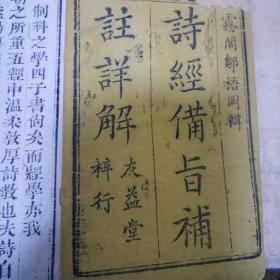 霧閣鄒梧岡輯
詩經備旨補
註詳解
友益堂
梓行
制科之學四子書尙矣而經學亦我
朝之所重五經中溫柔敦厚詩教也夫詩自